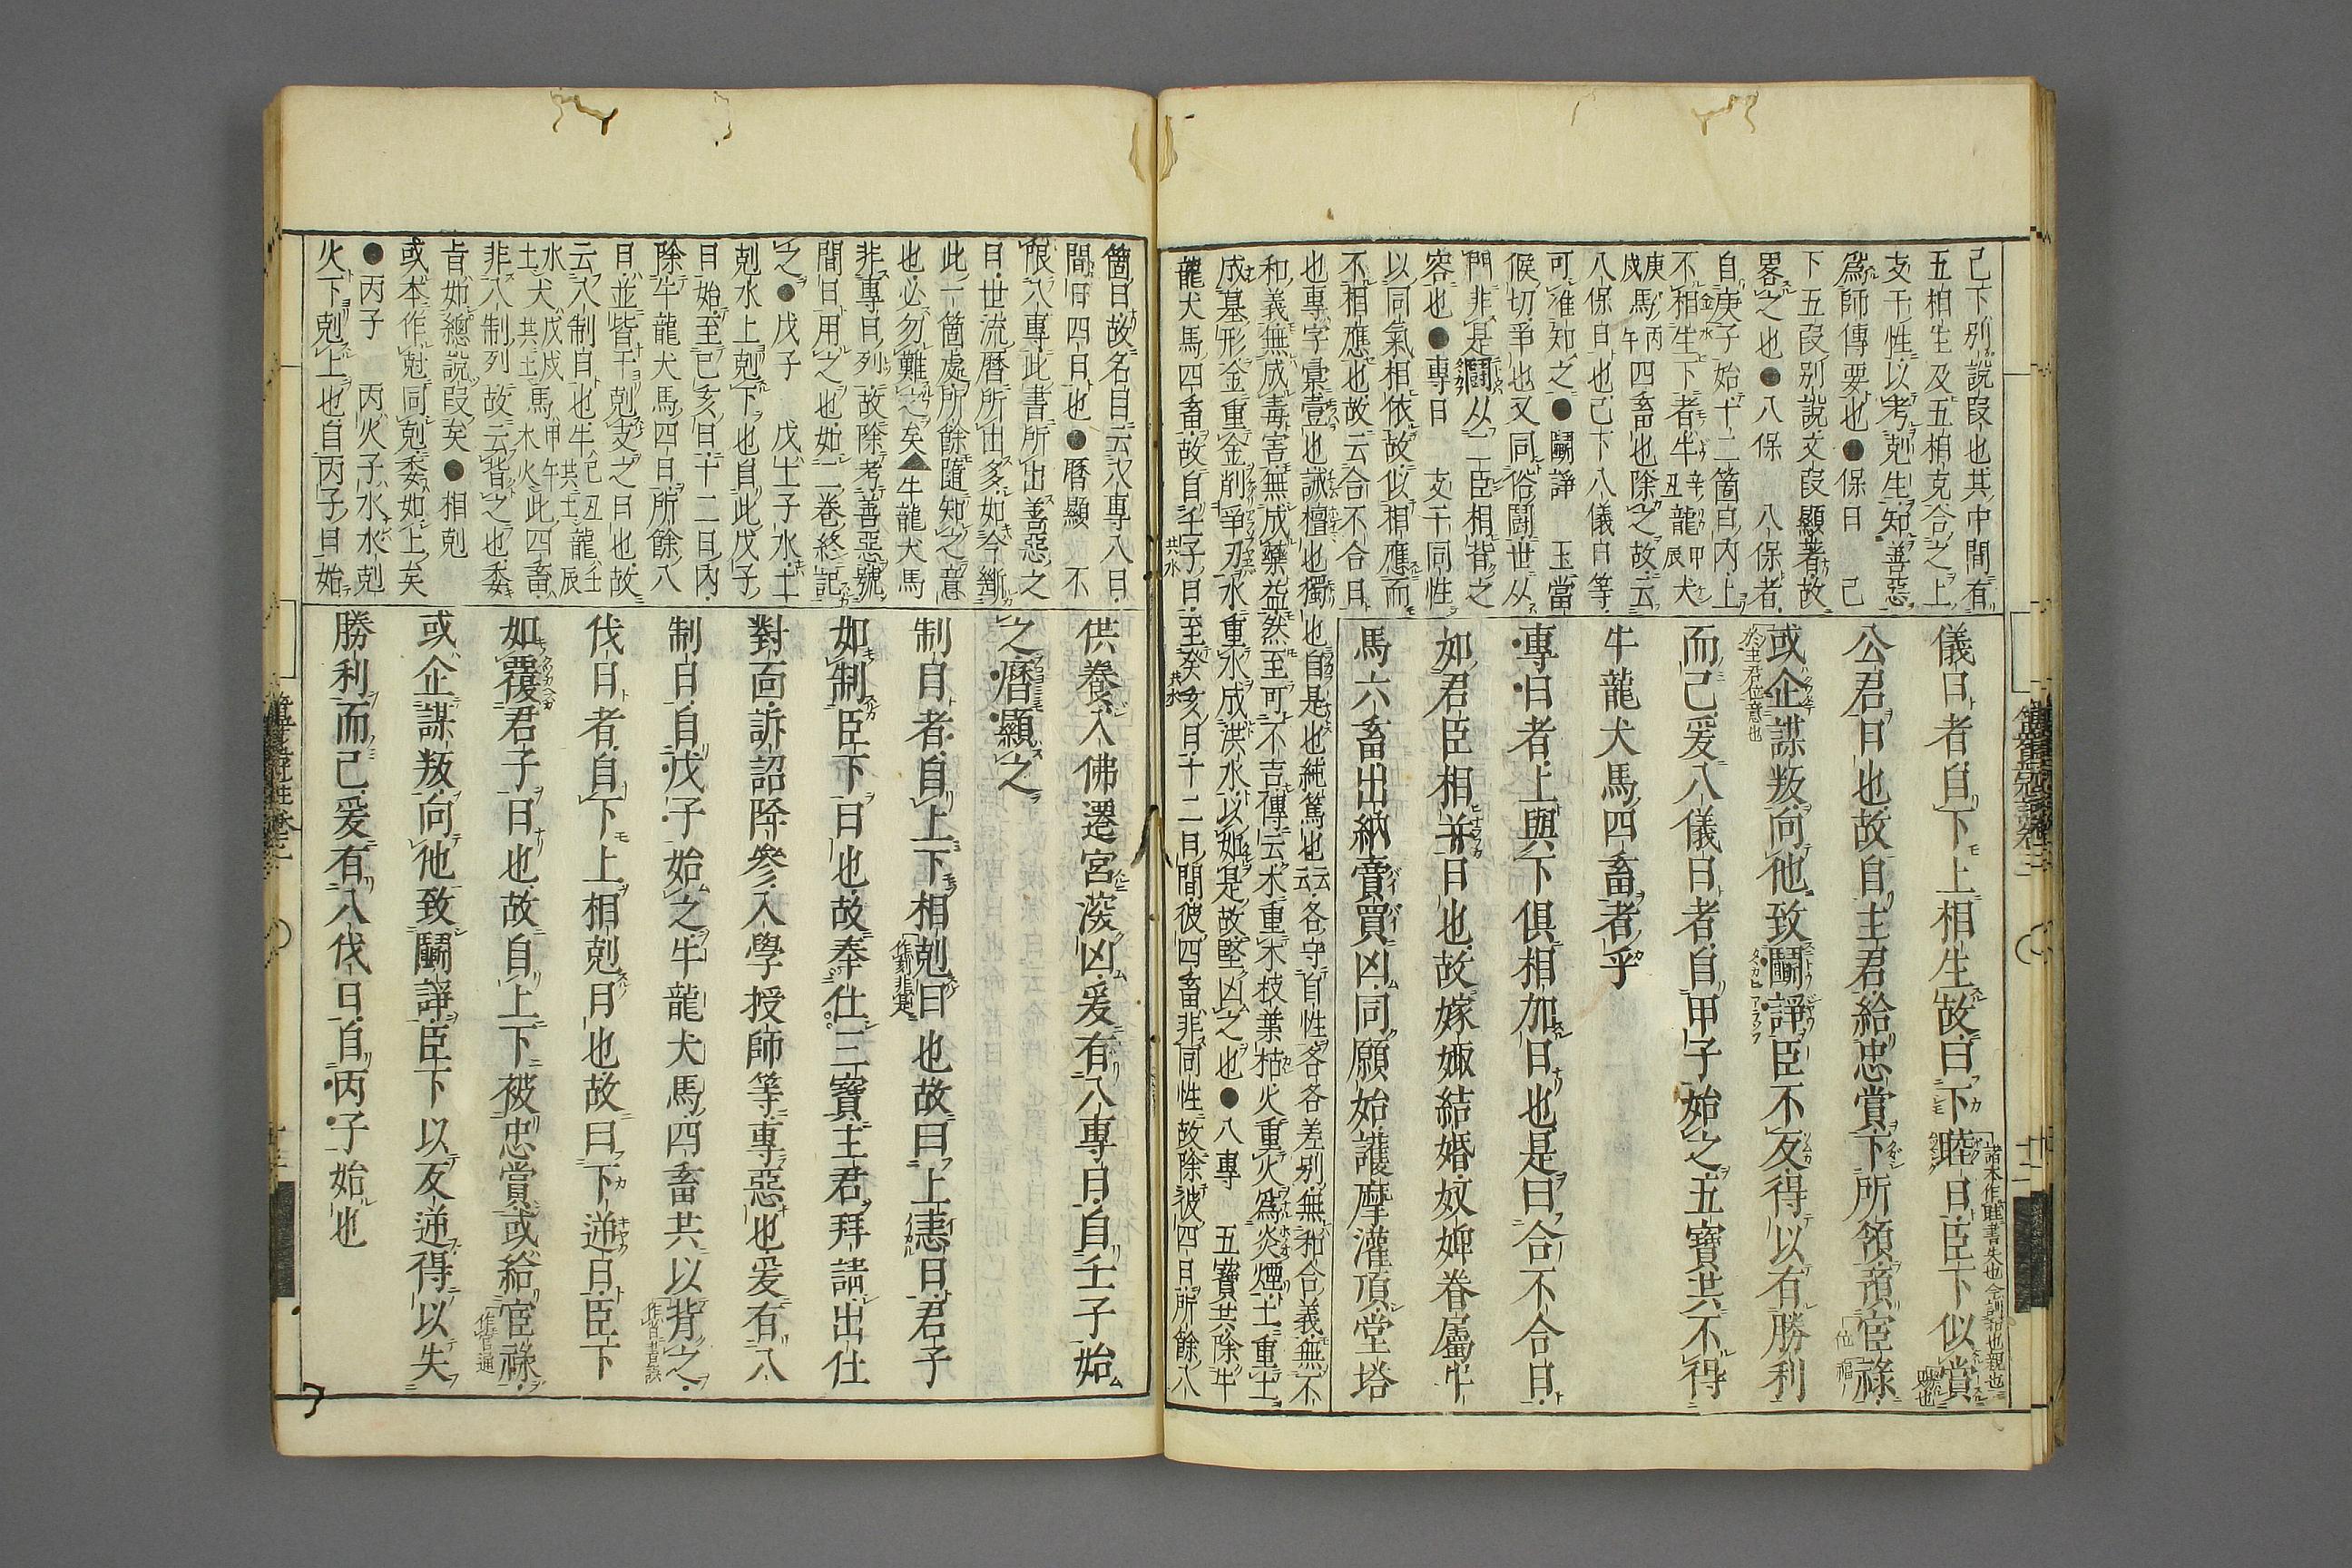 儀日者自下上相生故曰下睦日臣下似賞
公君日也故自主君給忠賞下所領預宦祿
或企謀叛向他致鬭諍臣不反得以有勝利
而已爰八儀日者自甲子始之五寶共不得
牛龍犬馬四畜者乎
專日者上與下俱相加日也是曰合不合日
如君臣相並日也故嫁娵結婚奴婢眷屬牛
馬六畜出納賣買凶同願始護摩灌頂堂塔
己下別說段也其中間有
五相生及五相克合之上
支干性以考剋生知善惡
爲師傳要也●保日　己
下五段別說文段顯著故
畧之也●八保　八保者
自庚子始十二箇日內上
不相生下者牛辛丑龍甲辰犬
庚戌馬丙午四畜也除之故云
八保日也己下八儀日等
可准知之●鬭諍　玉當
候切爭也又同俗鬪世从
門非是鬭从二臣相背之
容也●專日　支干同性
以同氣相依故似相應而
不相應也故云合不合日
也專字彙壹也誠檀也獨也自是也純篤也云云各守自性各各差別無和合義無不
和義無成毒害無成藥益然至可不吉傳云木重木枝葉枯火重火爲炎煙土重土
成墓形金重金削爭刃水重水成洪水以如是故堅凶之也●八專　五寶共除牛
龍犬馬四畜故自壬子日至癸亥日十二日間彼四畜非同性故除彼四日所餘八
供養入佛遷宮溌凶爰有八專日自壬子始
之曆顯之
制日者自上下相剋日也故曰上恚日君子
如制臣下日也故奉仕三寶主君拜請出仕
對面訴詔降參入學授師等專惡也爰有八
制日自戊子始之牛龍犬馬四畜共以背之
伐日者自下上相剋日也故曰下逆日臣下
如覆君子日也故自上下被忠賞或給宦祿
或企謀叛向他致鬭諍臣下以反逆得以失
勝利而已爰有八伐日自丙子始也
箇日故名目云八專八日
間日四日也●曆顯　不
限八專此書所出善惡之
日世流曆所出多如今斷
此一箇處所餘隨知之意
也必勿難之矣▲牛龍犬馬
非專日列故除考善惡號
間日用之也如二卷終記
之●戊子　戊土子水土
剋水上剋下也自此戊子
日始至己亥日十二日內
除牛龍犬馬四日所餘八
日並皆干剋支之日也故
云八制日也牛己丑共土龍壬辰
水土犬戊戌共土馬甲午木火此四畜
非八制列故云背之也委
旨如總說段矣●相剋
或本作尅同剋委如上矣
●丙子　丙火子水水剋
火下剋上也自丙子日始